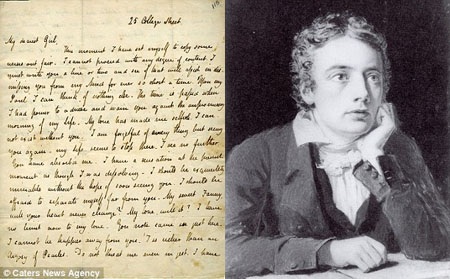 25 College Street.
My dearest Girl,
This moment I have set myself to copy some
verses out fair. I cannot proceed with any degree of content. I
must write you a line or two and see if that will assist in dis-
missing you from my Mind for ever so short a time. Upon my
Soul I can think of nothing else. The time is passed when
I had power to advise and warn you against the unpromising
morning of my Life. My love has made me selfish. I can
not exist without you. I am forgetful of every thing but seeing
you again. my Life seems to stop there. I see no further.
You have absorb'd me. I have a sensation at the present
moment as though I was dissolving. I should be exquisitely
miserable without the hope of soon seeing you. I should be
afraid to separate myself far from you. My sweet Fanny
will your heart never change? My love will it? I have
no limit now to my love. Your note came in just here.
I cannot be happier away from you. 'Tis richer than an
Argosy of Pearles. Do not threat me even in jest. I have
© Caters News Agency